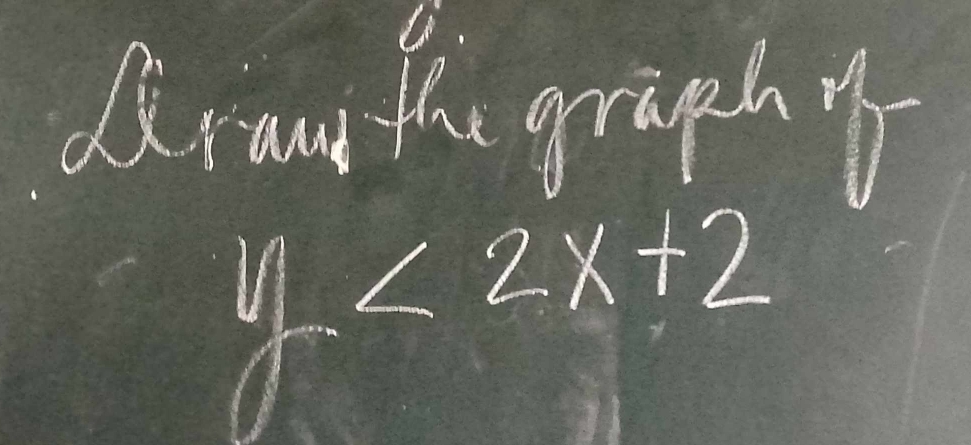 Draw the graph of
y < 2x+2